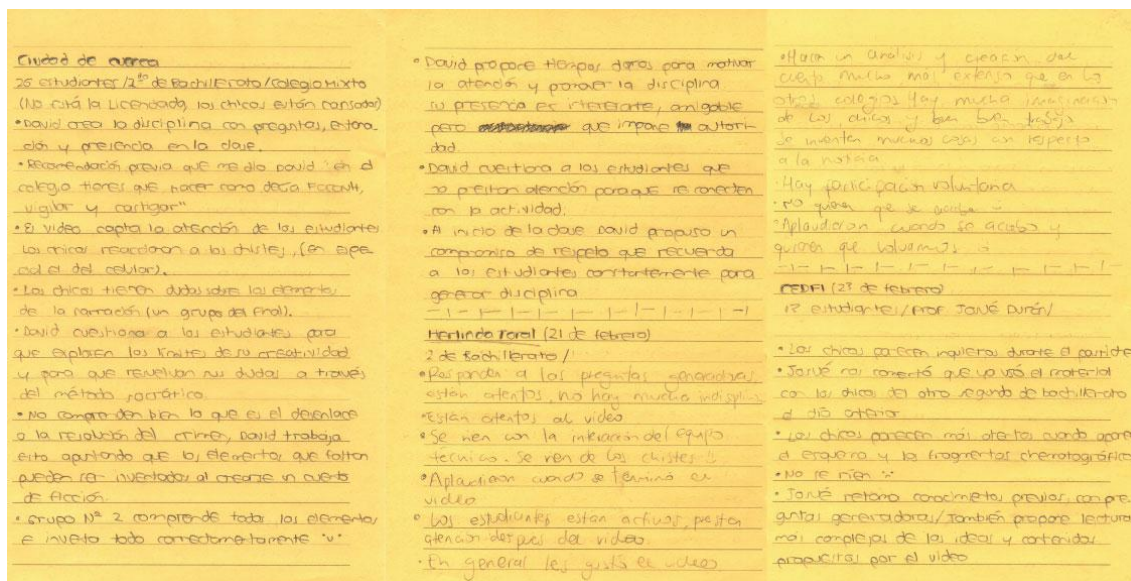 Ciudad de cuenca
25 estudiantes / 2do de Bachillerato / Colegio Mixto
(No está la Licenciada, los chicos están cansados)
• David crea la disciplina con preguntas, entona-
ción y presencia en la clase.
• Recomendación previa que me dio David: "en el
colegio tienes que hacer como decía Foccault,
vigilar y castigar"
• El video capta la atención de los estudiantes
Los chicos reaccionan a los chistes, (en espe
cial el del celular).
• Los chicos tienen dudas sobre los elementos
de la narración (un grupo del final).
• David cuestiona a los estudiantes para
que exploren los límites de su creatividad
y para que resuelvan sus dudas a través
del método socrático.
• No comprenden bien lo que es el desenlace
o la resolución del crimen, David trabaja
esto apuntando que los elementos que faltan
pueden ser inventados al crearse un cuento
de ficción.
• Grupo Nº 2 comprende todos los elementos
e inventa todo correctamente "u"
• David propone tiempos claros para motivar
la atención y promover la disciplina
su presencia es interesante, amigable
pero que impone autori-
dad.
• David cuestiona a los estudiantes que
no prestan atención para que se conecten
con la actividad.
• Al inicio de la clase David propuso un
compromiso de respeto que recuerda
a los estudiantes constantemente para
generar disciplina
Herlinda Toral (21 de febrero)
2 de Bachillerato /
• Responden a las preguntas generadoras
están atentos, no hay mucha indisplin
• Están atentos al video
• Se rien con la interacción del equipo
técnico. Se ríen de los chistes :)
• Aplaudieron cuando se terminó el
video
• Los estudiantes están activos, prestan
atención despues del video.
• En general les gustó el video
• Hacen un análisis y creación del
cuento mucho más extenso que en los
otros colegios Hay mucha imaginación
de los chicos y buen trabajo
se inventan muchas cosas con respecto
a la noticia
• Hay participación voluntaria
• No quieren que se acabe
• Aplaudieron cuando se acabó y
quieren que volvamos :)
CEDFI (23 de febrero)
17 estudiantes / Prof Josué Durán /
• Los chicos parecen inquietos durante el
• Josué nos comentó que ya usó el material
con los chicos del otro segundo de bachillerato
el día anterior
• Los chicos parecen más atentos cuando aparece
el esquema y los fragmentos cinematográficos
• No se ríen :(
• Josué retoma conocimientos previos, con pre-
guntas generadoras / También propone lecturas
más complejas de las ideas y contenidos
propuestos por el video